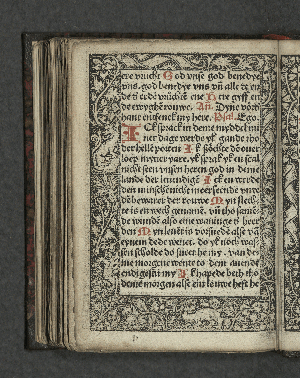 ere vrucht God vnse god benedye
vns. god benedye vns vñ alle re en
de d erde vrüchtē ene Here gyff en
de ewyghe rouwe. Añ. Dyne vört
hant entfenck my here. Psal. Ego.
ICk sprack in deme myddel my
ner dage werde yk gande tho
der helle porten Ik sochte döuer
loep myner yare. yk sprak yk en scal
nicht seen vnsen heren god in deme
lande der leuendigē Ik en werde
den minschē nicht meer seende vnde
dē bewaner der rouwe Myn slech
te is en wech genamē. vñ tho samē
de wunde alse eine waninge d herer
den Myn leuēt is vorsnedē alse vā
eynem dede weuet. do yk noch was
sen scholde do sneet he my. van der
me morgene wente to dem auende
endigestu my Ik hapede beth tho
deme morgen alse ein leuwe heft he